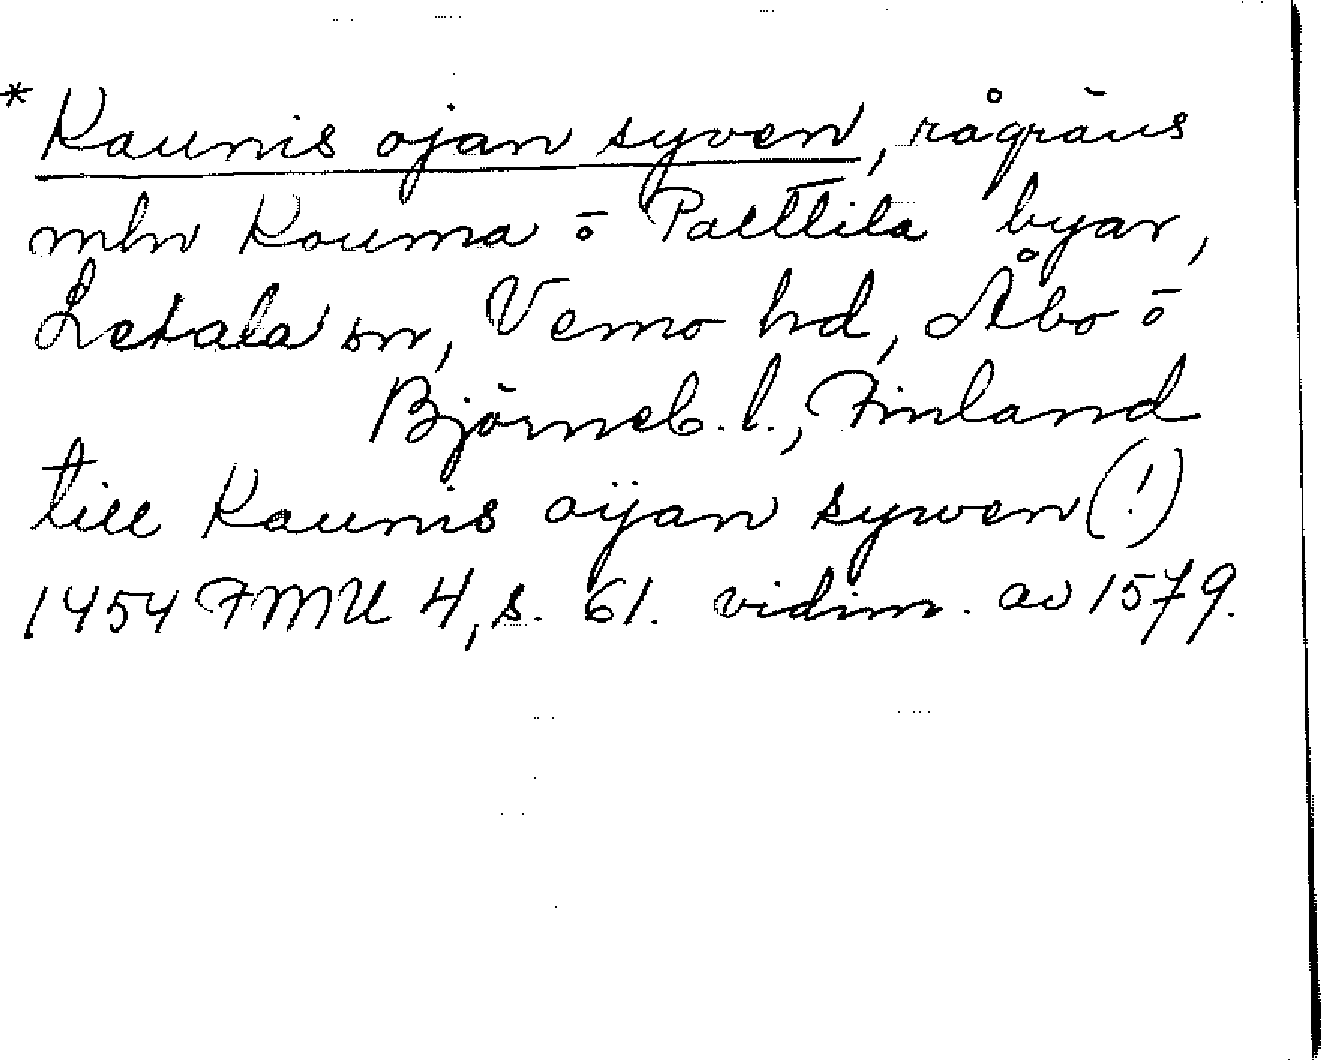 * Kaunis ojan syven, rågräns
mln Kouma ō Palttila byar,
Letala sn, Vemo hd, Åbo ō
Björneb. l., Finland
till Kaunis oijan sywen (!)
1454 FMU 4, s. 61. vidim. av 1579.